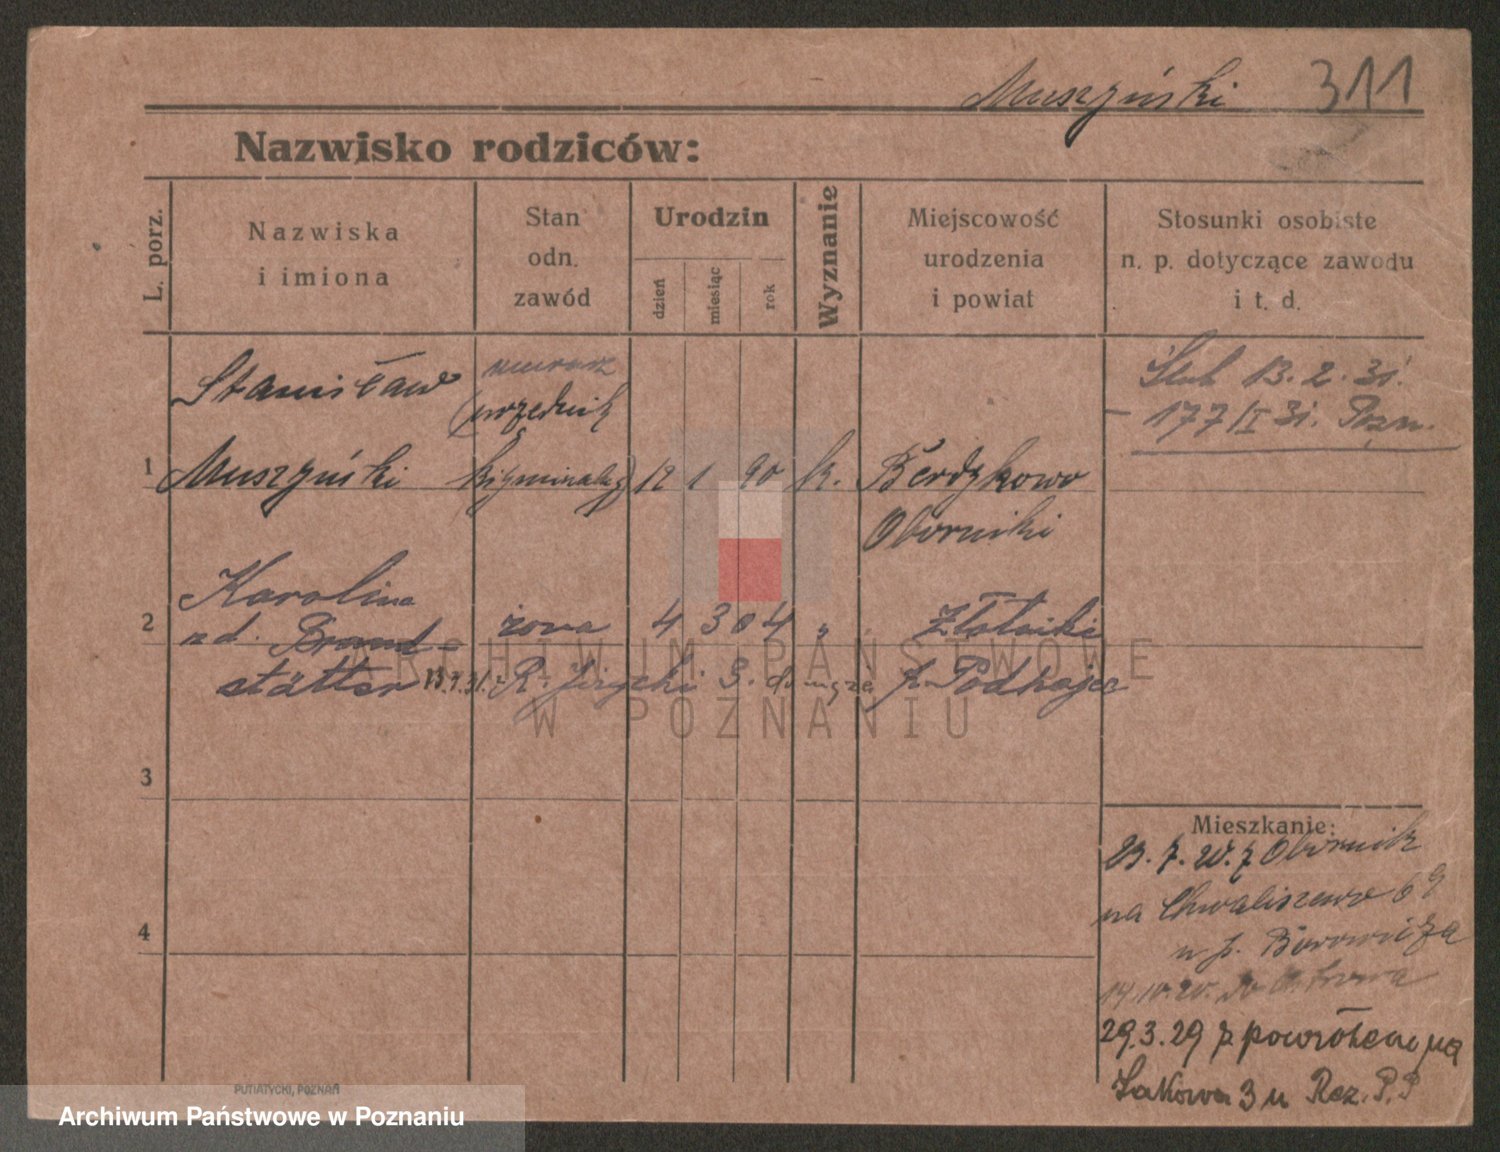 Muszyński 311
Nazwisko rodziców:
L. porz.
Nazwiska
i imiona
Stan
odn.
zawód
Urodzin
dzień
miesiąc
rok
Wyznanie
Miejscowość
urodzenia
i powiat
Stosunki osobiste
n. p. dotyczące zawodu
i t. d.
Stanisław
urzędnik
Ślub 13. 2. 31.
177/I 31. Pozn.
1 Muszyński 12 1 90 k.
Oborniki
2 Karolina żona 4 3 04 " Złotniki
zd. Brand-
stätter do męża p. Podhajce
3
4
Mieszkanie:
23. 7. 20. z Obornik
na Chwaliszewo 69
u p. Borowicza
14.10.20. do
29.3.29 z powrotem na
Łąkowa 3 u Rez. P.P
ARCHIWUM PAŃSTWOWE
W POZNANIU
PUTIATYCKI, POZNAŃ
Archiwum Państwowe w Poznaniu